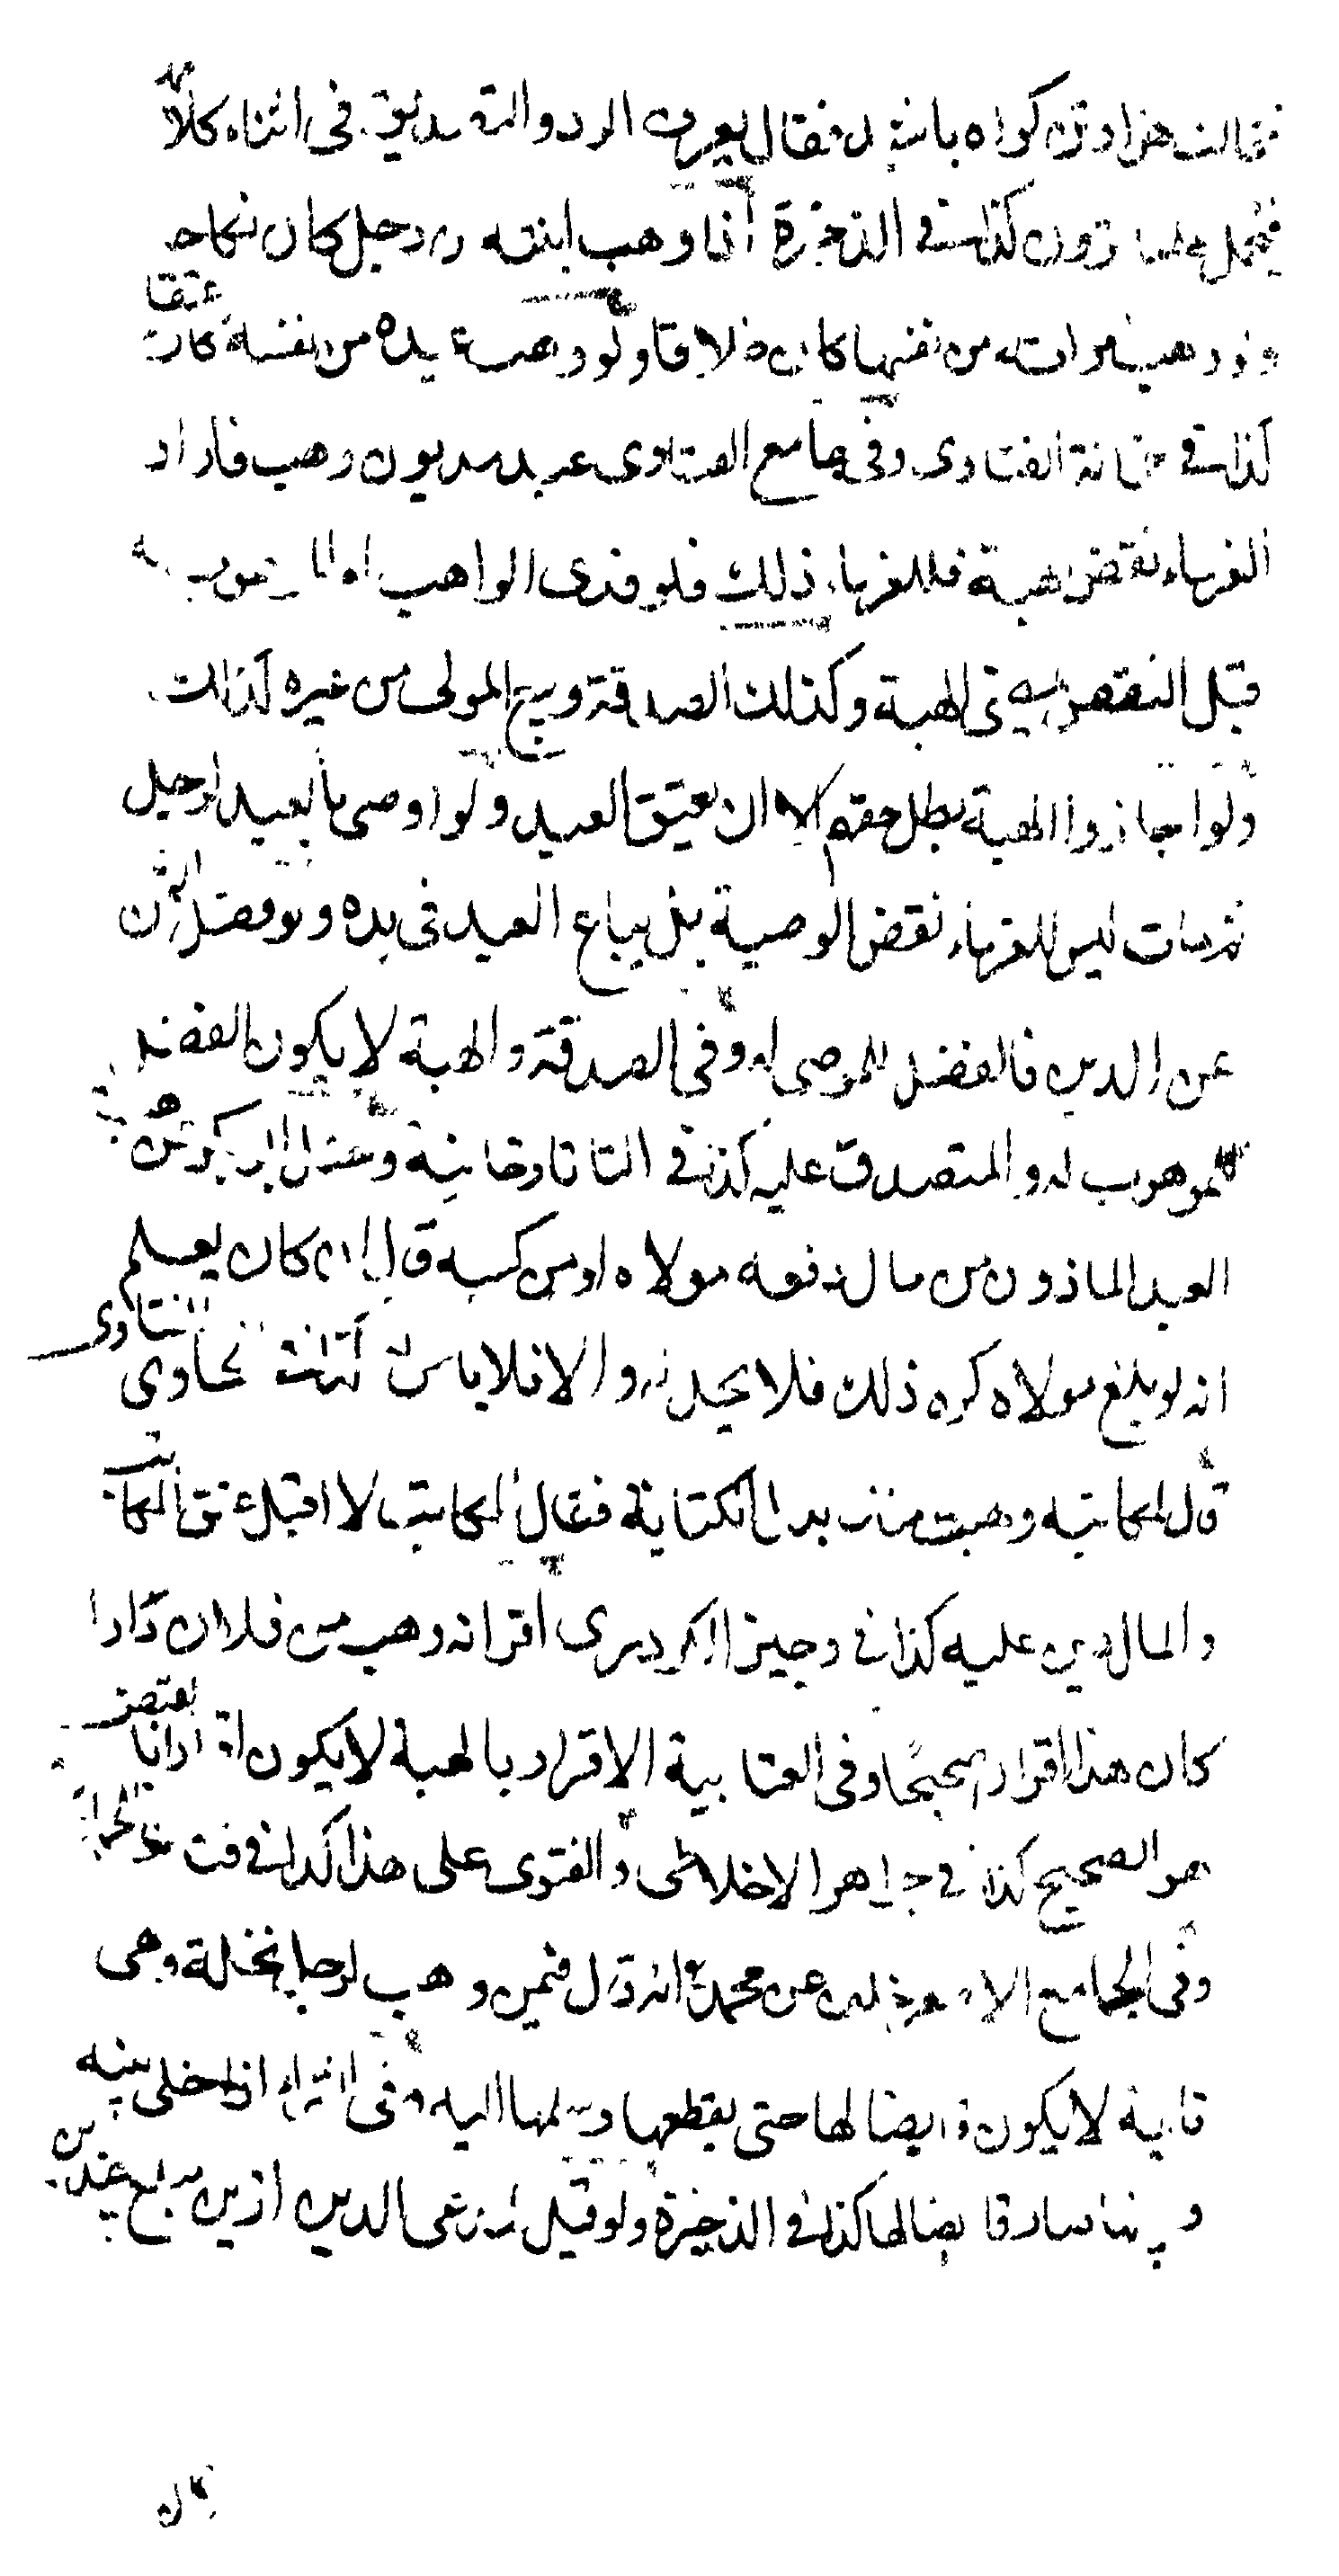 فقالت هزار تو كواه باش فقال يعرف الرد والتصديق في اثناء كلامه
فيحمل على ما ترون كذا في الذخيرة اذا وهب ابنته من رجل كان نكاحا
ولو وهب امراته من نفسها كان طلاقا ولو وهب عبده من نفسه كان عتقا
كذا في خزانة الفتاوى وفي جامع الفتاوى عبد مديون وهب فاراد
الغرماء نقض الهبة فللغرماء ذلك فلو فدى الواهب او الموهوب له
قبل النقض بقي الهبة وكذلك الصدقة وبيع المولى من غيره كذلك
ولو اجازوا الهبة بطل حقهم الا ان يعتق العبد ولو اوصى بالعبد لرجل
ثم مات ليس للغرماء نقض الوصية بل يباع العبد في يده ولو فضل الثمن
عن الدين فالفضل للموصى له وفي الصدقة والهبة لا يكون الفضل
للموهوب له والمتصدق عليه كذا في التاتارخانية وعن ابي بكر
العبد الماذون من مال دفعه مولاه او من كسبه قال ان كان يعلم
انه لو بلغ مولاه كره ذلك فلا يحل له والا فلا باس كذا في حاوي الفتاوى
قال لمكاتبه وهبت منك بدل الكتابة فقال المكاتب لا اقبل عتق المكاتب
والمال دين عليه كذا في وجيز الكردري اقر انه وهب من فلان دارا
كان هذا اقرارا صحيحا وفي العتابية الاقرار بالهبة لا يكون اقرارا بالقبض
هو الصحيح كذا في جواهر الاخلاطي والفتوى على هذا كذا في
وفي الجامع الاصغر خلف عن محمد انه قال فيمن وهب لرجل نخلة وهي
قايمة لا يكون قابضا لها حتى يقطعها ويسلمها اليه وفي الشراء اذا خلى بينه
وبينها صار قابضا لها كذا في الذخيرة ولو قيل لمدعي الدين ازين